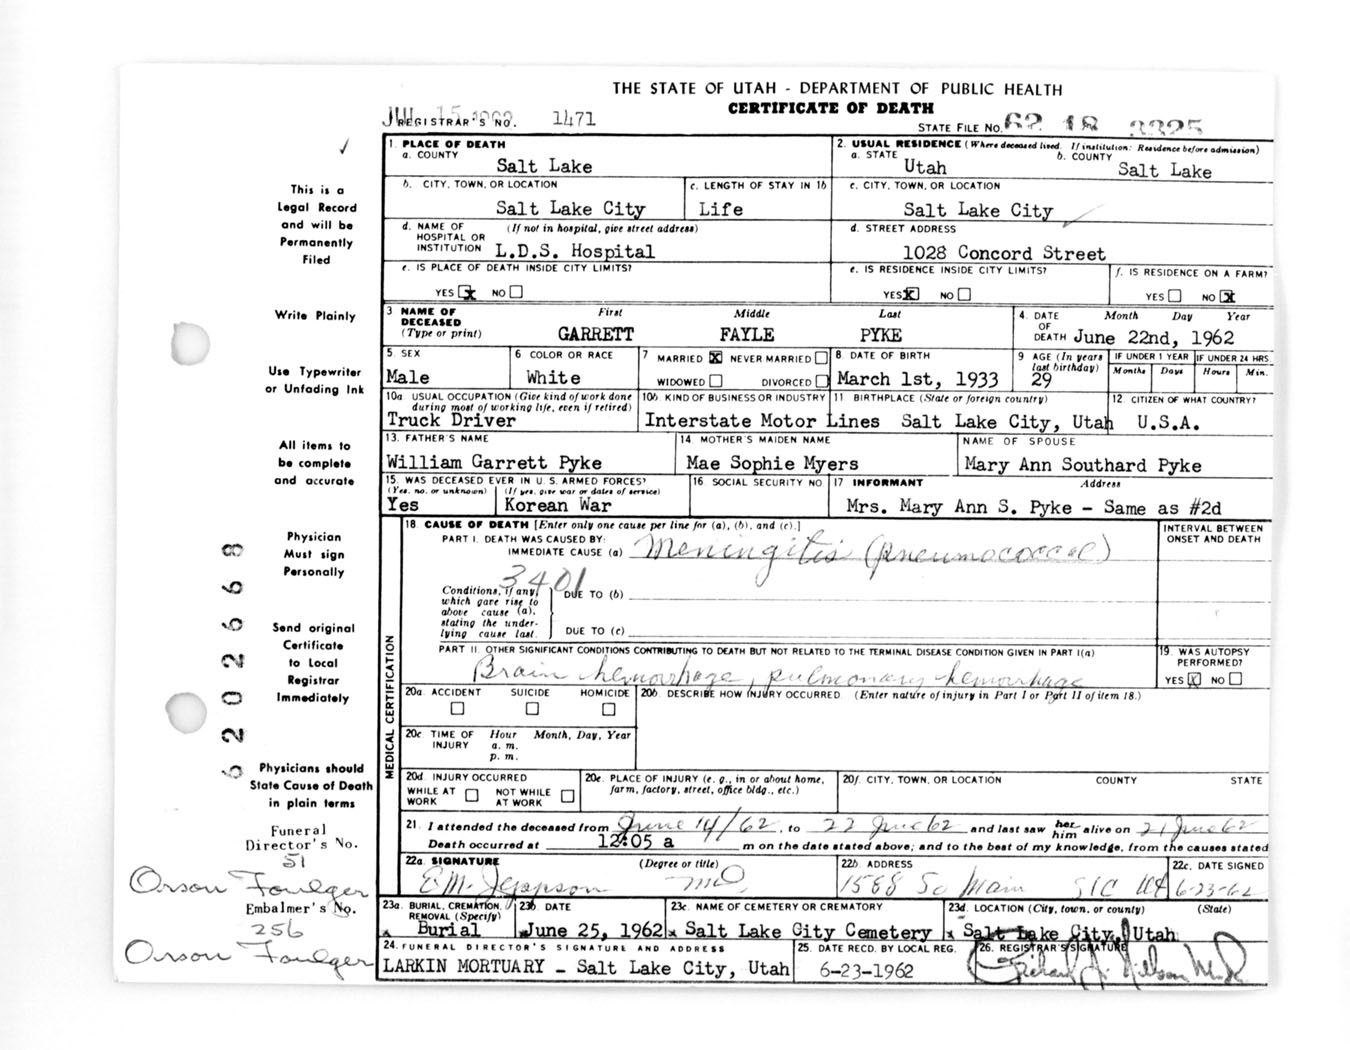 THE STATE OF UTAH - DEPARTMENT OF PUBLIC HEALTH
CERTIFICATE OF DEATH
REGISTRAR'S NO. 1471
STATE FILE NO. 62 18
1. PLACE OF DEATH
a. COUNTY Salt Lake
2. USUAL RESIDENCE (Where deceased lived. If institution: Residence before admission)
a. STATE Utah b. COUNTY Salt Lake
b. CITY, TOWN, OR LOCATION Salt Lake City
c. LENGTH OF STAY IN 1b Life
c. CITY, TOWN, OR LOCATION Salt Lake City
d. NAME OF HOSPITAL OR INSTITUTION (If not in hospital, give street address) L.D.S. Hospital
d. STREET ADDRESS 1028 Concord Street
e. IS PLACE OF DEATH INSIDE CITY LIMITS? YES X NO
e. IS RESIDENCE INSIDE CITY LIMITS? YES X NO
f. IS RESIDENCE ON A FARM? YES NO X
3 NAME OF DECEASED (Type or print) First Middle Last
GARRETT FAYLE PYKE
4. DATE OF DEATH Month Day Year
June 22nd, 1962
5. SEX Male
6 COLOR OR RACE White
7 MARRIED X NEVER MARRIED
WIDOWED DIVORCED
8 DATE OF BIRTH March 1st, 1933
9 AGE (In years last birthday) 29
IF UNDER 1 YEAR Months Days
IF UNDER 24 HRS. Hours Min.
10a. USUAL OCCUPATION (Give kind of work done during most of working life, even if retired) Truck Driver
10b. KIND OF BUSINESS OR INDUSTRY Interstate Motor Lines
11 BIRTHPLACE (State or foreign country) Salt Lake City, Utah
12 CITIZEN OF WHAT COUNTRY? U.S.A.
13. FATHER'S NAME William Garrett Pyke
14 MOTHER'S MAIDEN NAME Mae Sophie Myers
NAME OF SPOUSE Mary Ann Southard Pyke
15. WAS DECEASED EVER IN U.S. ARMED FORCES?
(Yes, no, or unknown) Yes (If yes, give war or dates of service) Korean War
16 SOCIAL SECURITY NO.
17 INFORMANT Address
Mrs. Mary Ann S. Pyke - Same as #2d
18. CAUSE OF DEATH [Enter only one cause per line for (a), (b), and (c).]
INTERVAL BETWEEN ONSET AND DEATH
PART I. DEATH WAS CAUSED BY:
IMMEDIATE CAUSE (a) Meningitis (pneumococcal)
3401
Conditions, if any, which gave rise to above cause (a), stating the underlying cause last.
DUE TO (b)
DUE TO (c)
PART II. OTHER SIGNIFICANT CONDITIONS CONTRIBUTING TO DEATH BUT NOT RELATED TO THE TERMINAL DISEASE CONDITION GIVEN IN PART I(a)
Brain hemorrhage, pulmonary hemorrhage
19. WAS AUTOPSY PERFORMED? YES X NO
20a. ACCIDENT SUICIDE HOMICIDE
20b. DESCRIBE HOW INJURY OCCURRED. (Enter nature of injury in Part I or Part II of item 18.)
20c. TIME OF INJURY Hour a. m. p. m. Month, Day, Year
20d. INJURY OCCURRED
WHILE AT WORK NOT WHILE AT WORK
20e. PLACE OF INJURY (e. g., in or about home, farm, factory, street, office bldg., etc.)
20f. CITY, TOWN, OR LOCATION COUNTY STATE
21. I attended the deceased from June 14/62, to 22 June 62 and last saw her him alive on 21 June 62
Death occurred at 12:05 a m on the date stated above; and to the best of my knowledge, from the causes stated
22a. SIGNATURE (Degree or title)
E.M. Jeppson MD
22b. ADDRESS 1588 So Main SLC Ut
22c. DATE SIGNED 6-23-62
23a. BURIAL, CREMATION, REMOVAL (Specify) Burial
23b DATE June 25, 1962
23c. NAME OF CEMETERY OR CREMATORY Salt Lake City Cemetery
23d. LOCATION (City, town, or county) (State)
Salt Lake City, Utah
24. FUNERAL DIRECTOR'S SIGNATURE AND ADDRESS
LARKIN MORTUARY - Salt Lake City, Utah
25. DATE RECD. BY LOCAL REG. 6-23-1962
26. REGISTRAR'S SIGNATURE
MEDICAL CERTIFICATION
This is a
Legal Record
and will be
Permanently
Filed
Write Plainly
Use Typewriter
or Unfading Ink
All items to
be complete
and accurate
Physician
Must sign
Personally
Send original
Certificate
to Local
Registrar
Immediately
Physicians should
State Cause of Death
in plain terms
Funeral
Director's No.
51
Orson Foulger
Embalmer's No.
256
Orson Foulger